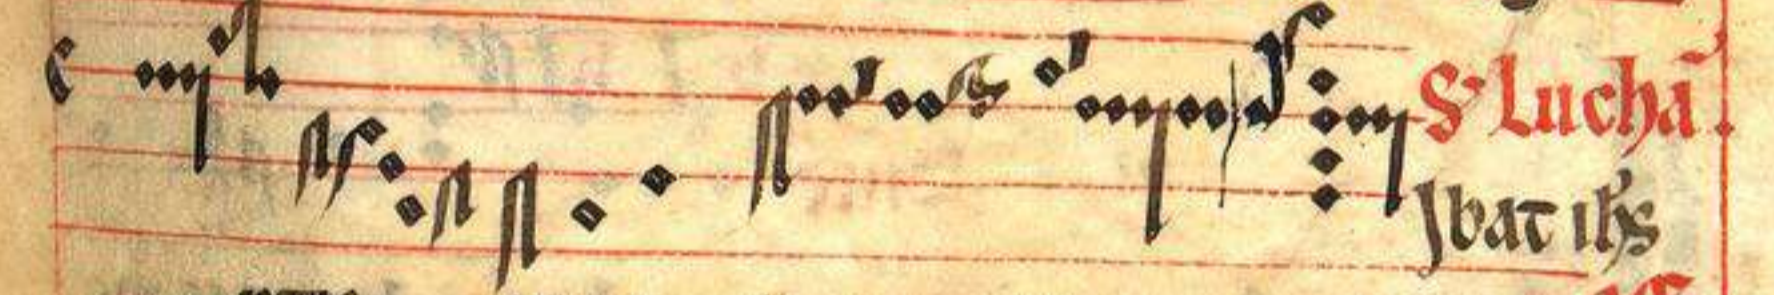 S. Luchā.
Jbat ih̄s